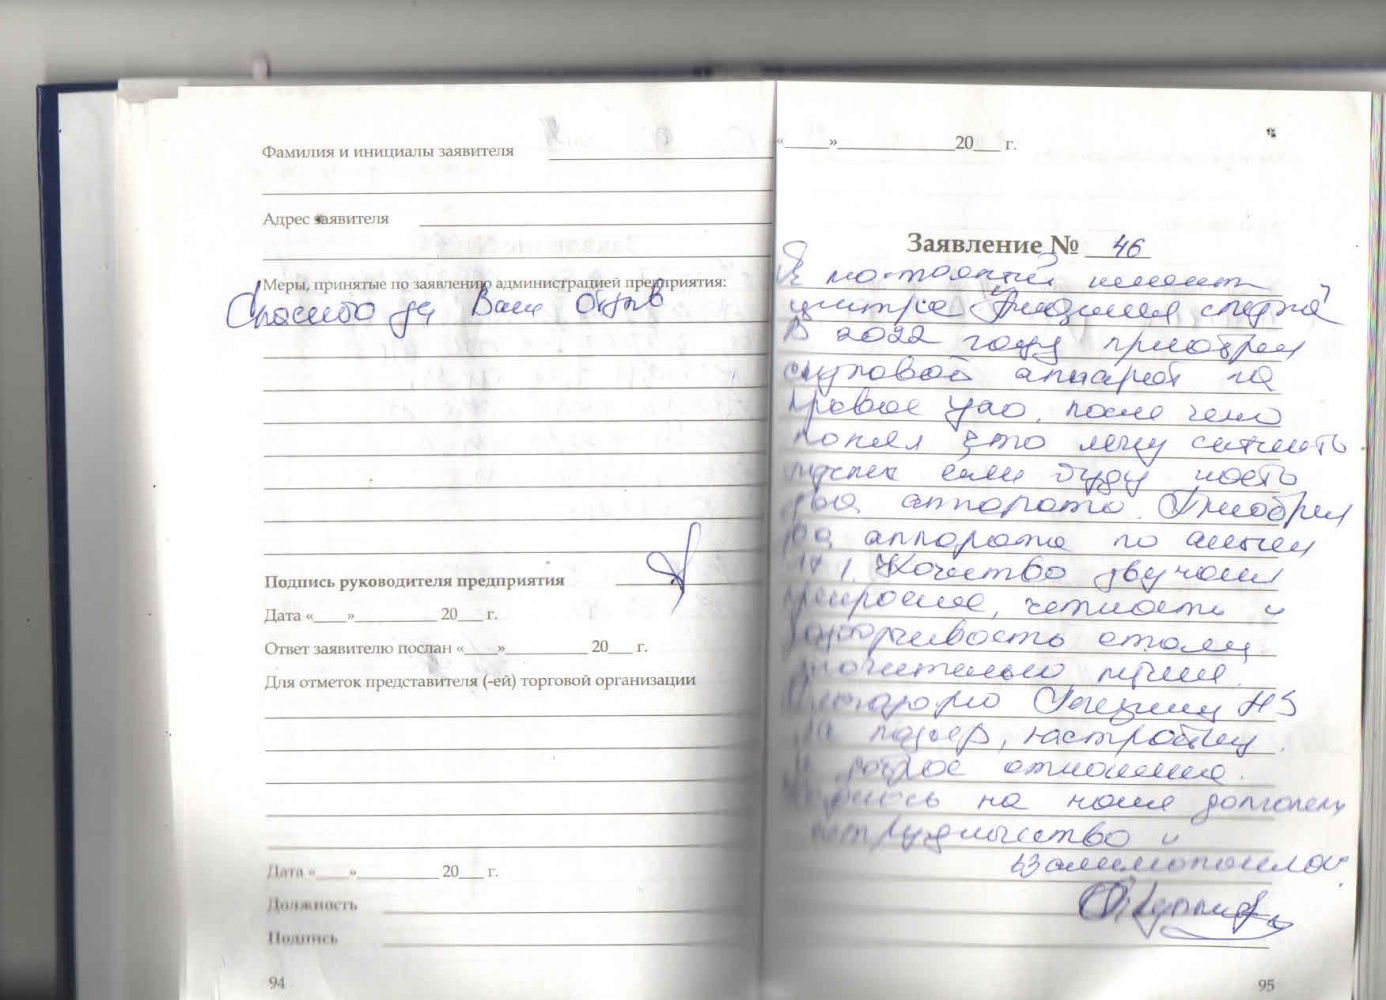 Фамилия и инициалы заявителя
Адрес заявителя
Меры, принятые по заявлению администрацией предприятия:
Спасибо за Ваш отзыв
Подпись руководителя предприятия
Дата «____»__________ 20___ г.
Ответ заявителю послан «____»__________ 20___ г.
Для отметок представителя (-ей) торговой организации
Дата «____»__________ 20___ г.
Должность
Подпись
94
«_____»______________20___ г.
Заявление № 46
Я постоянный клиент
центра
В 2022 году приобрел
слуховой аппарат на
правое ухо, после чего
понял что могу слышать
лучше если буду носить
два аппарата. Приобрел
два аппарата по акции
1+1. Качество звучания
прекрасное, четкость и
разборчивость стали
значительно лучше.
Благодарю
за подбор, настройку
и доброе отношение.
Надеюсь на наше долголетн
сотрудничество и
взаимопонимание
95